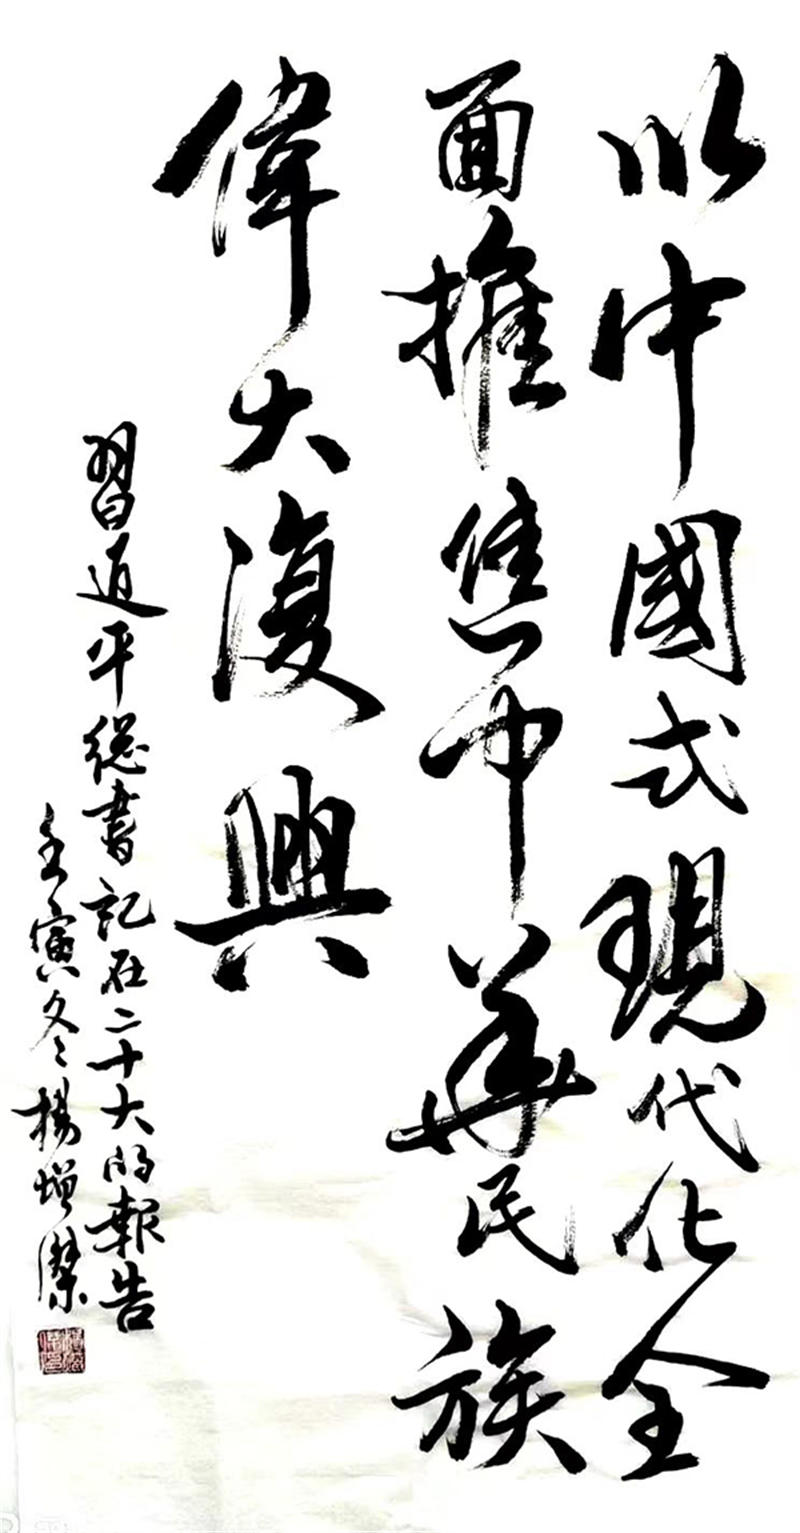 以中國式現代化全
面推進中華民族
偉大復興
習近平總書記在二十大的報告
壬寅冬楊增潔